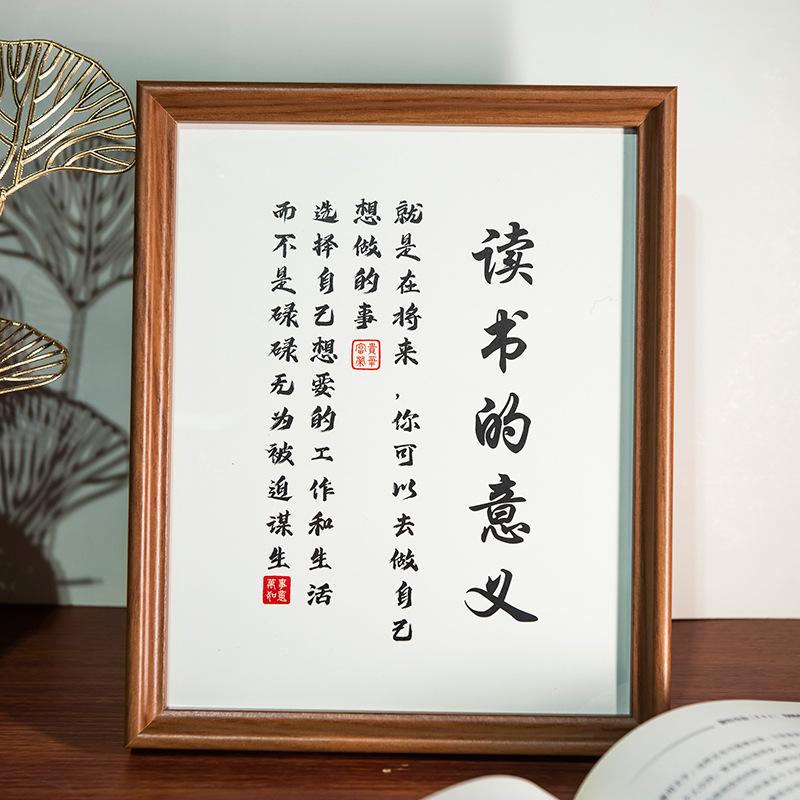 读书的意义
就是在将来，你可以去做自己
想做的事
富贵荣华
选择自己想要的工作和生活
而不是碌碌无为被迫谋生
万事如意